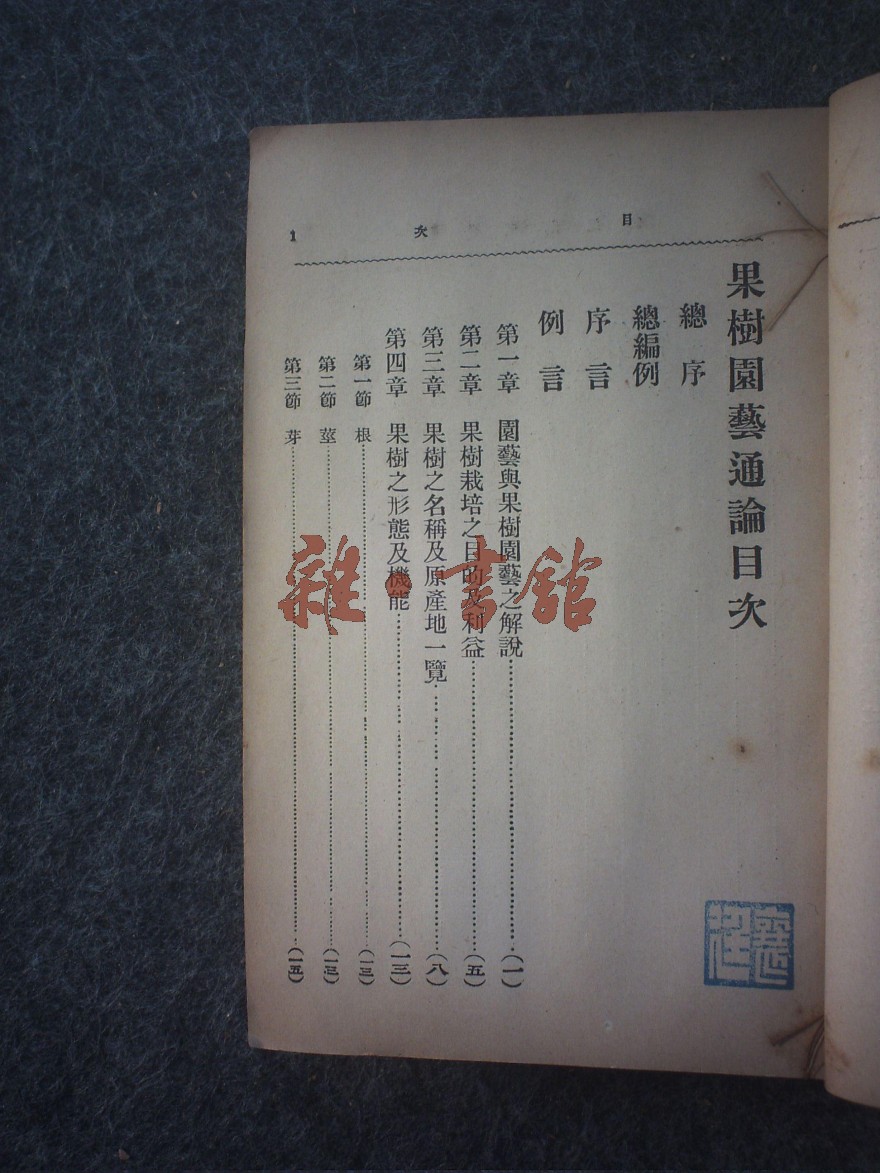 目次 1
果樹園藝通論目次
總序
總編例
序言
例言
第一章 園藝與果樹園藝之解說……(一)
第二章 果樹栽培之目的及利益……(五)
第三章 果樹之名稱及原產地一覽……(八)
第四章 果樹之形態及機能……(一三)
第一節 根……(一三)
第二節 莖……(一三)
第三節 芽……(一五)
雜·書舘